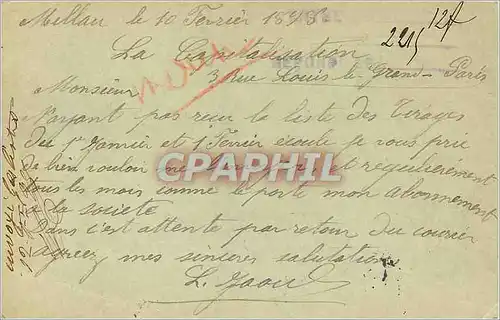 Millau le 10 Fevrier 1898
2215 12f
La Capitalisation
3 Rue Louis-le-Grand - Paris
Monsieur
N'ayant pas reçu la liste des Tirages
du 1er Janvier et 1 Fevrier écoulé je vous prie
de bien vouloir me régulièrement
tous les mois comme le porte mon abonnement
à la société
Dans c'est attente par retour du courier
agreez mes sinceres salutations
L.
CPAPHIL